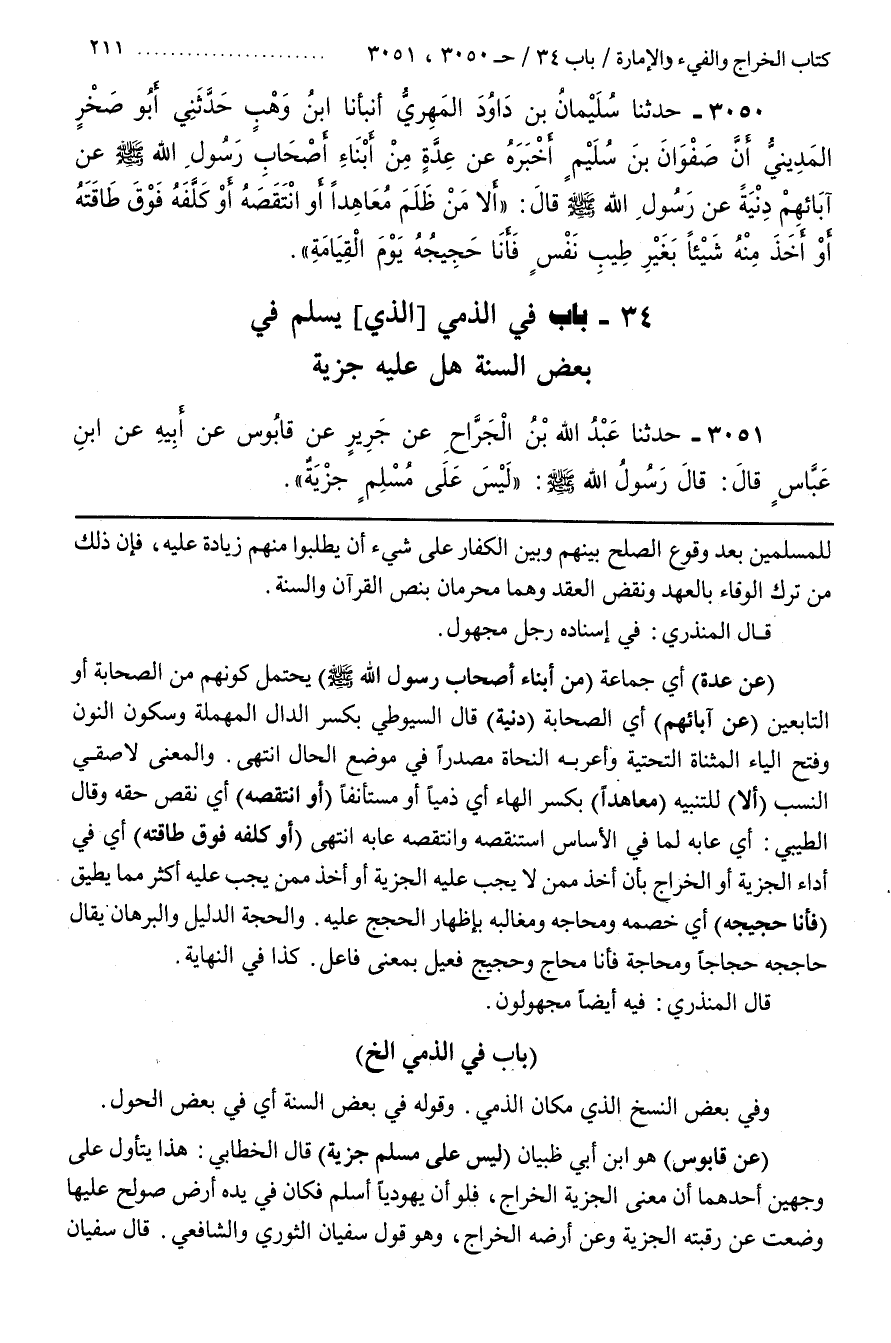 كتاب الخراج والفيء والإمارة / باب ٣٤ / حـ ٣٠٥٠ ، ٣٠٥١ ........................ ٢١١
٣٠٥٠ ـ حدثنا سُلَيْمانُ بن دَاوُدَ المَهرِيُّ أنبأنا ابنُ وَهْبٍ حَدَّثَنِي أَبُو صَخْرٍ
المَدِينيُّ أَنَّ صَفْوَانَ بنَ سُلَيْمٍ أَخْبَرَهُ عن عِدَّةٍ مِنْ أَبْنَاءِ أَصْحَابِ رَسُولِ الله ﷺ عن
آبَائِهِمْ دِنْيَةً عن رَسُولِ الله ﷺ قالَ: «أَلا مَنْ ظَلَمَ مُعَاهِداً أو انْتَقَصَهُ أَوْ كَلَّفَهُ فَوْقَ طَاقَتَهُ
أَوْ أَخَذَ مِنْهُ شَيْئاً بَغَيْرِ طِيبِ نَفْسٍ فَأَنَا حَجِيجُهُ يَوْمَ الْقِيَامَةِ».
٣٤ ـ باب في الذمي [الذي] يسلم في
بعض السنة هل عليه جزية
٣٠٥١ ـ حدثنا عَبْدُ الله بْنُ الْجَرَّاحِ عن جَرِيرٍ عن قابُوس عن أَبِيهِ عن ابنِ
عَبَّاسٍ قالَ: قالَ رَسُولُ الله ﷺ: «لَيْسَ عَلَى مُسْلِمٍ جِزْيَةٌ».
للمسلمين بعد وقوع الصلح بينهم وبين الكفار على شيء أن يطلبوا منهم زيادة عليه، فإن ذلك
من ترك الوفاء بالعهد ونقض العقد وهما محرمان بنص القرآن والسنة.
قال المنذري: في إسناده رجل مجهول.
(عن عدة) أي جماعة (من أبناء أصحاب رسول الله ﷺ) يحتمل كونهم من الصحابة أو
التابعين (عن آبائهم) أي الصحابة (دنية) قال السيوطي بكسر الدال المهملة وسكون النون
وفتح الياء المثناة التحتية وأعربه النحاة مصدراً في موضع الحال انتهى. والمعنى لاصقي
النسب (ألا) للتنبيه (معاهداً) بكسر الهاء أي ذمياً أو مستأنفاً (أو انتقصه) أي نقص حقه وقال
الطيبي: أي عابه لما في الأساس استنقصه وانتقصه عابه انتهى (أو كلفه فوق طاقته) أي في
أداء الجزية أو الخراج بأن أخذ ممن لا يجب عليه الجزية أو أخذ ممن يجب عليه أكثر مما يطيق
(فأنا حجيجه) أي خصمه ومحاجه ومغالبه بإظهار الحجج عليه. والحجة الدليل والبرهان يقال
حاججه حجاجاً ومحاجة فأنا محاج وحجيج فعيل بمعنى فاعل. كذا في النهاية.
قال المنذري: فيه أيضاً مجهولون.
(باب في الذمي الخ)
وفي بعض النسخ الذي مكان الذمي. وقوله في بعض السنة أي في بعض الحول.
(عن قابوس) هو ابن أبي ظبيان (ليس على مسلم جزية) قال الخطابي: هذا يتأول على
وجهين أحدهما أن معنى الجزية الخراج، فلو أن يهودياً أسلم فكان في يده أرض صولح عليها
وضعت عن رقبته الجزية وعن أرضه الخراج، وهو قول سفيان الثوري والشافعي. قال سفيان